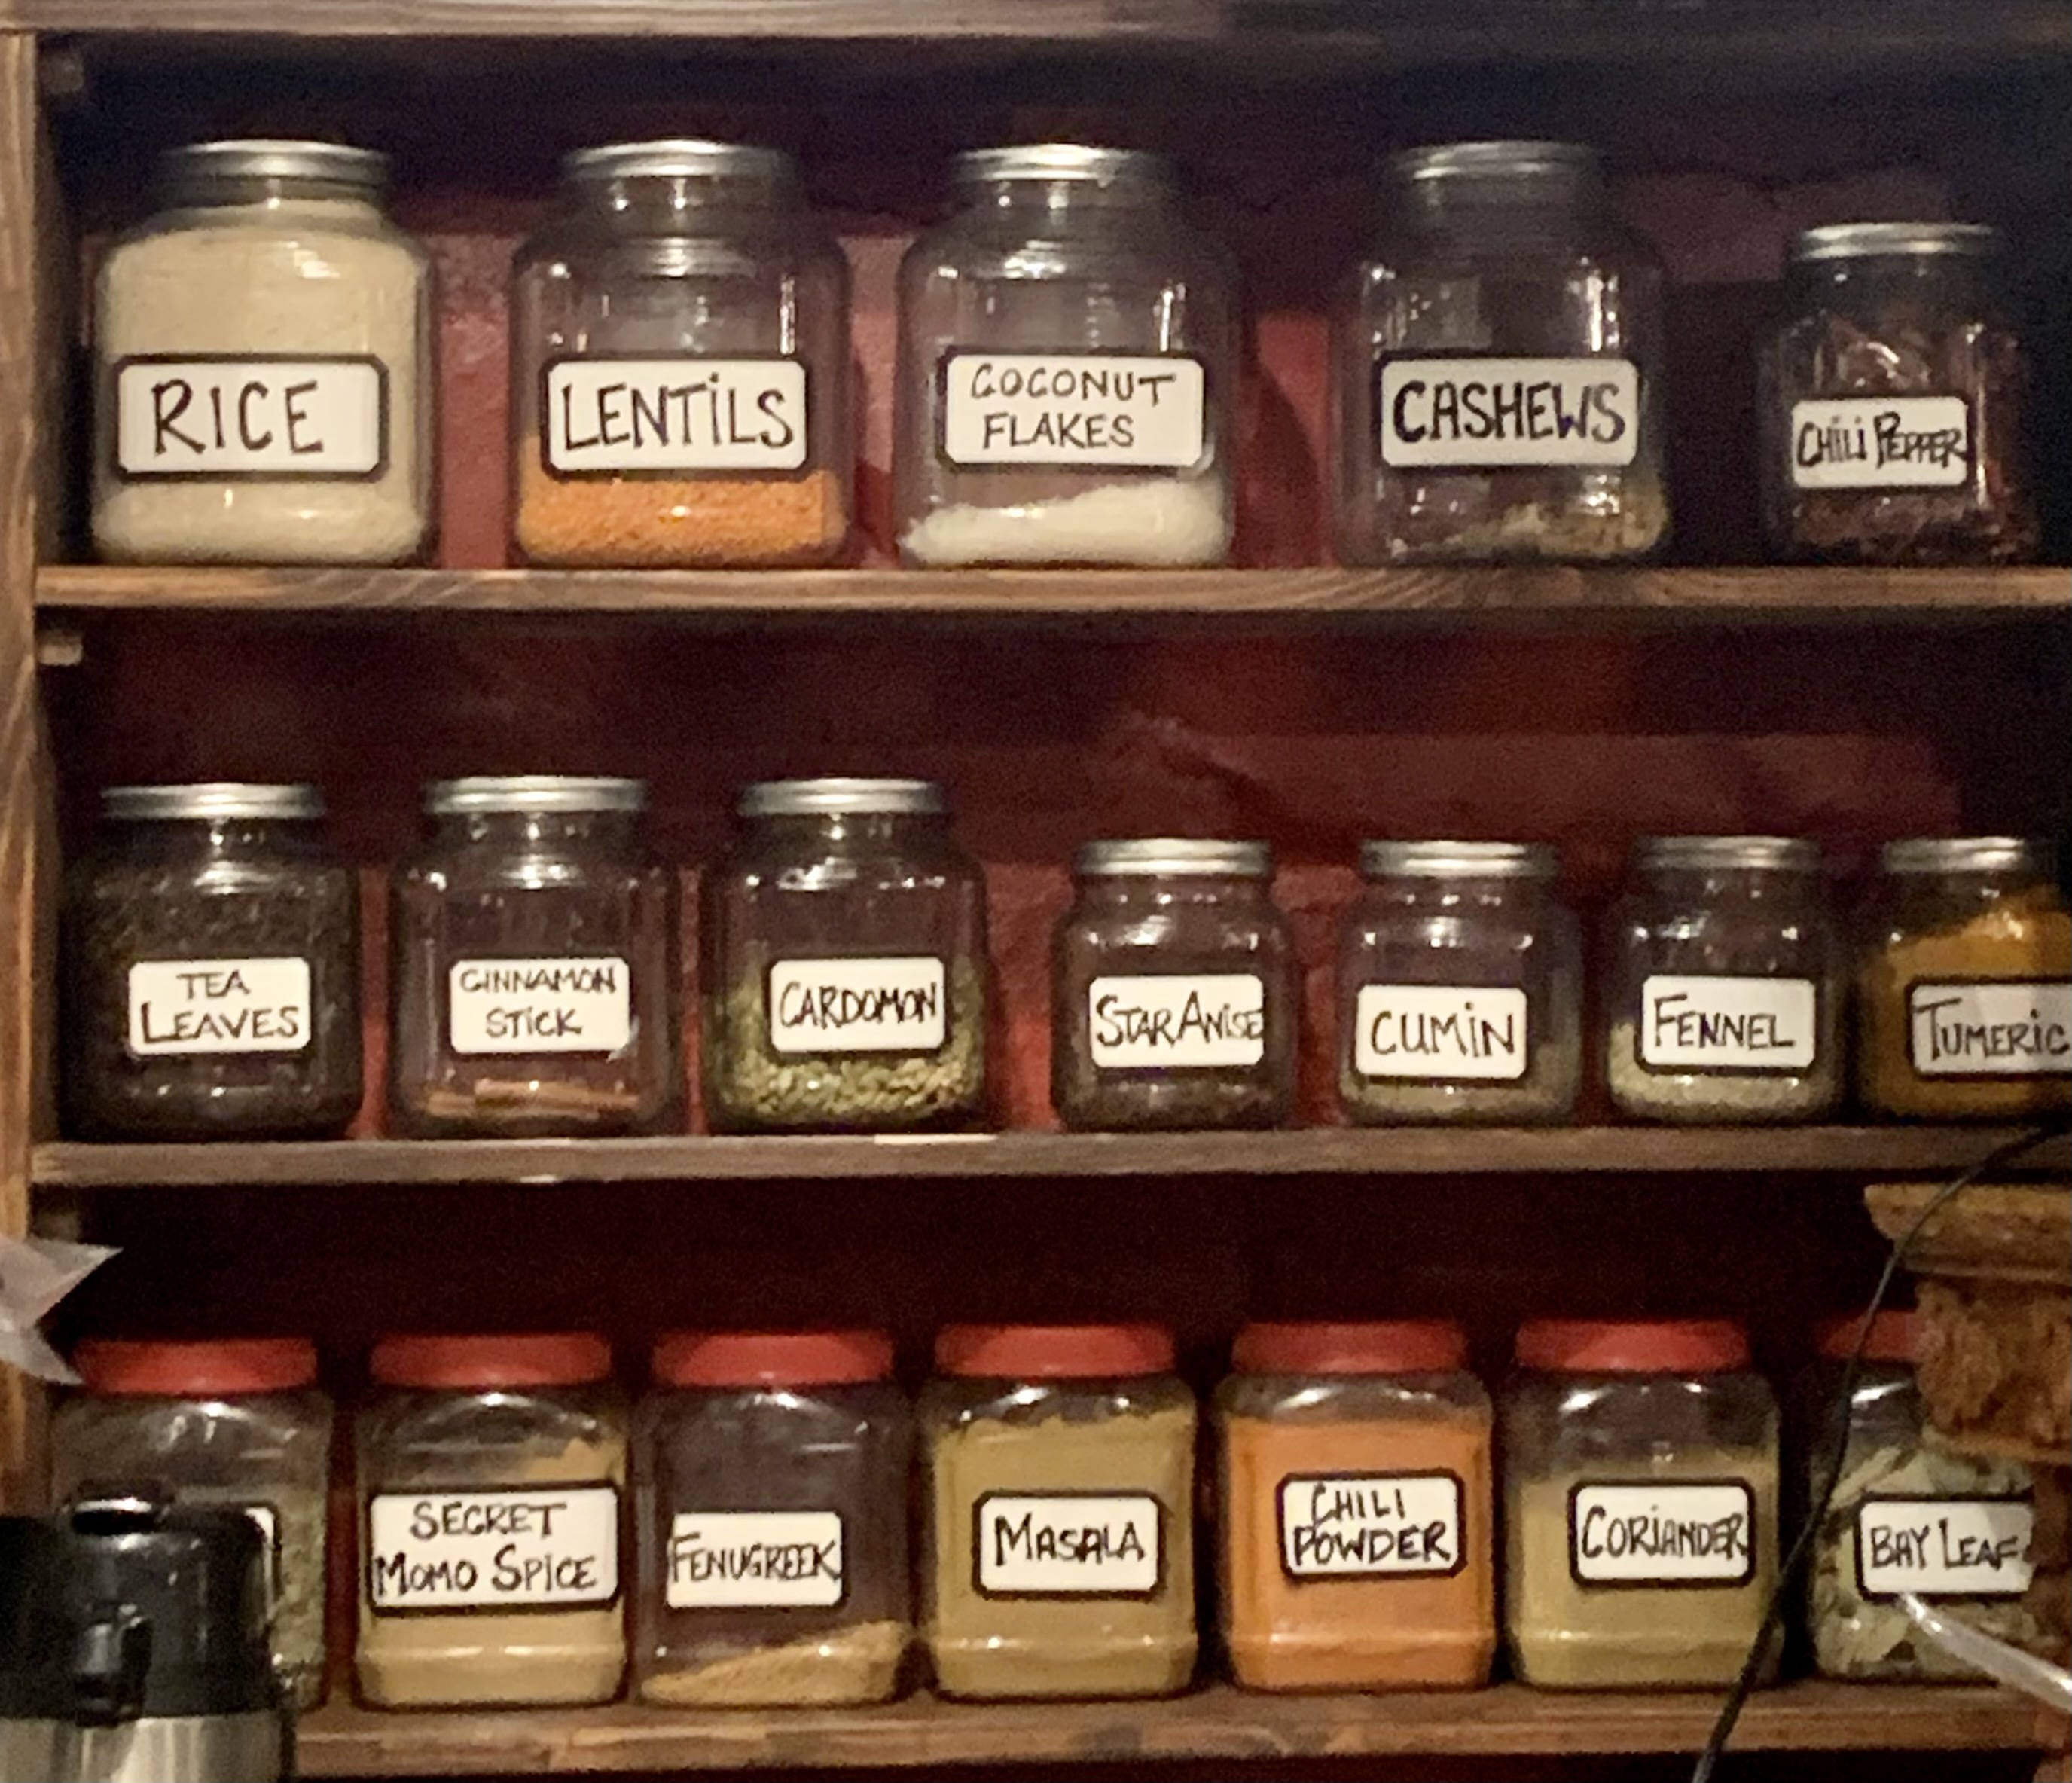 RICE
LENTiLS
COCONUT
FLAKES
CASHEWS
CHiLi PEPPER
TEA
LEAVES
CINNAMON
STiCK
CARDOMON
STAR ANiSE
CUMiN
FENNEL
TUMERiC
SECRET
MOMO SPiCE
FENUGREEK
MASALA
CHILI
POWDER
CORiANDER
BAY LEAF